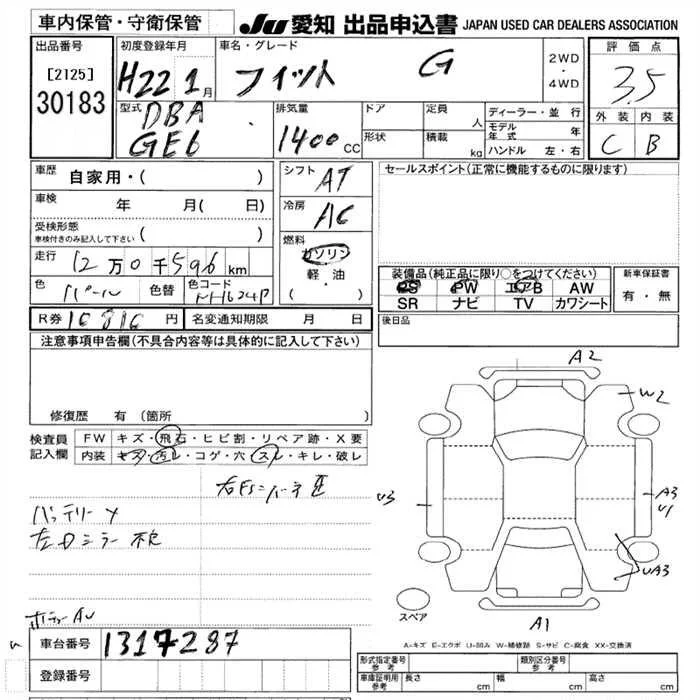 車内保管・守衛保管
JU 愛知 出品申込書 JAPAN USED CAR DEALERS ASSOCIATION
出品番号
[2125]
30183
初度登録年月
H22 1月
車名・グレード
フィット G
2WD
・
4WD
評価点
3.5
外装 内装
C B
型式
DBA
GE6
排気量
1400cc
ドア
形状
定員 人
積載 kg
ディーラー・並行
モデル年式 年
ハンドル 左・右
車歴 自家用・( )
車検 年 月( 日)
受検形態
車検付きのみ記入して下さい ( )
走行 12万0千596km
色 パール 色替 色コード NH624P
シフト AT
冷房 AC
燃料
ガソリン
軽・油
( )
セールスポイント(正常に機能するものに限ります)
装備品(純正品に限り○をつけてください)
PS PW エアB AW
SR ナビ TV カワシート
新車保証書
有・無
R券 10810円 名変通知期限 月 日
後日品
注意事項申告欄(不具合内容等は具体的に記入して下さい)
修復歴 有(箇所
検査員記入欄
FW キズ・飛石・ヒビ割・リペア跡・X要
内装 キズ・汚レ・コゲ・穴・スレ・キレ・破レ
バッテリーメ
左Dミラー不良
A2
W2
U3
A3
U1
UA3
A1
スペア
車台番号 1317287
登録番号
A=キズ E=エクボ U=凹み W=補修跡 S=サビ C=腐食 XX=交換済
形式指定番号 参考
類別区分番号 参考
車庫証明用 参考 長さ cm 幅 cm 高さ cm